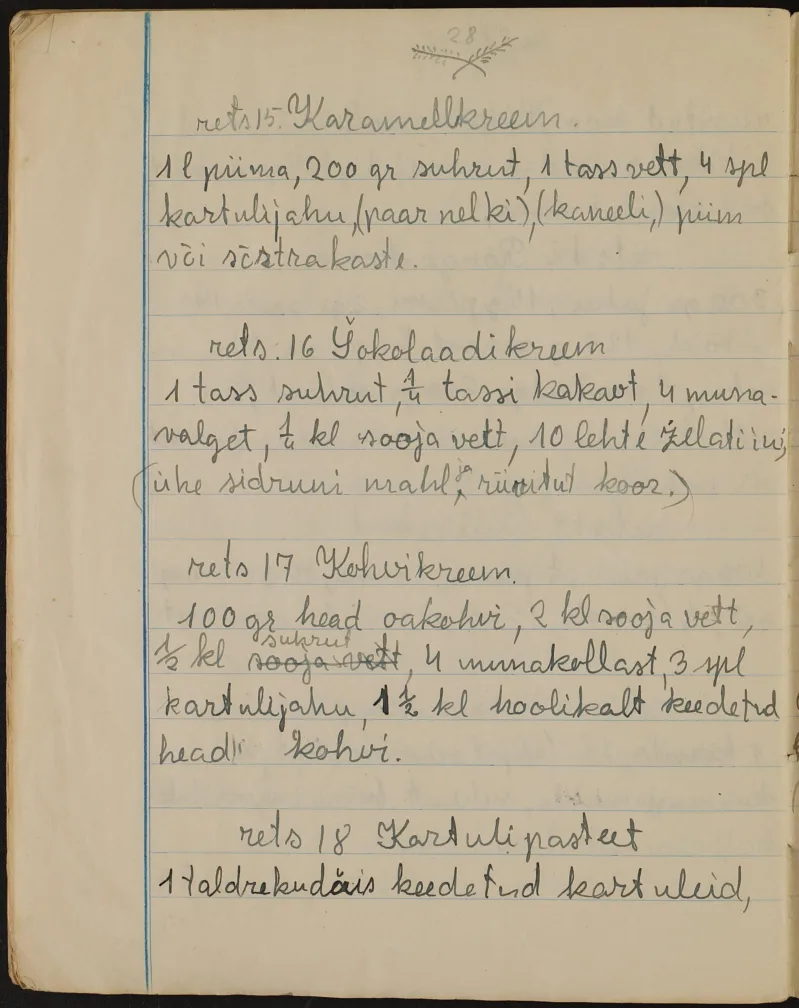 28
rets 15. Karamellkreem.
1 l piima, 200 gr suhrut, 1 tass vett, 4 spl
kartulijahu, (paar nelki), (kaneeli,) piim
või sõstrakaste.
rets. 16 Šokolaadikreem
1 tass suhrut, 1/4 tassi kakaot, 4 muna-
valget, 1/4 kl sooja vett, 10 lehte želatiini,
(ühe sidruni mahl, ja riivitut koor.)
rets 17 Kohvikreem.
100 gr head oakohvi, 2 kl sooja vett,
1/2 kl sooja vett suhrut, 4 munakollast, 3 spl
kartulijahu, 1 1/2 kl hoolikalt keedetud
head kohvi.
rets 18 Kartulipasteet
1 taldrekudäis keedetud kartuleid,